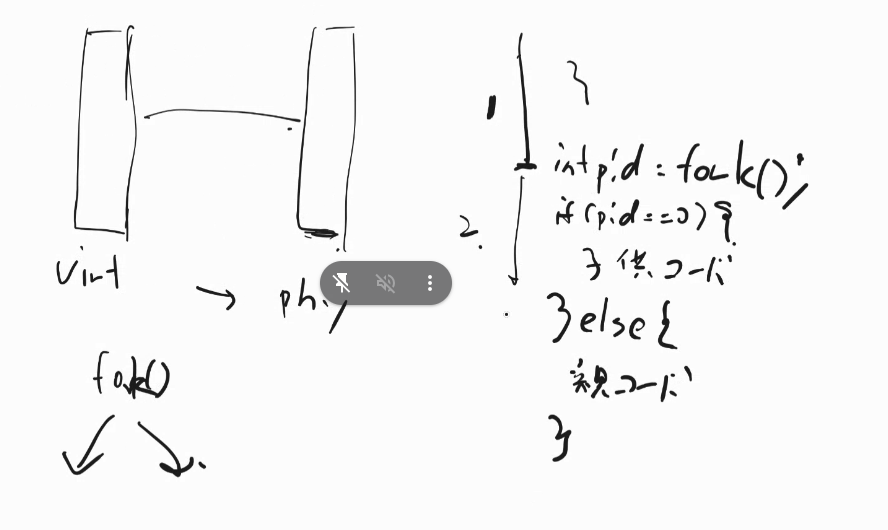 virt
→ phy
fork()
1
}
int pid = fork();
2.
if (pid == 0) {
子供コード
} else {
親コード
}